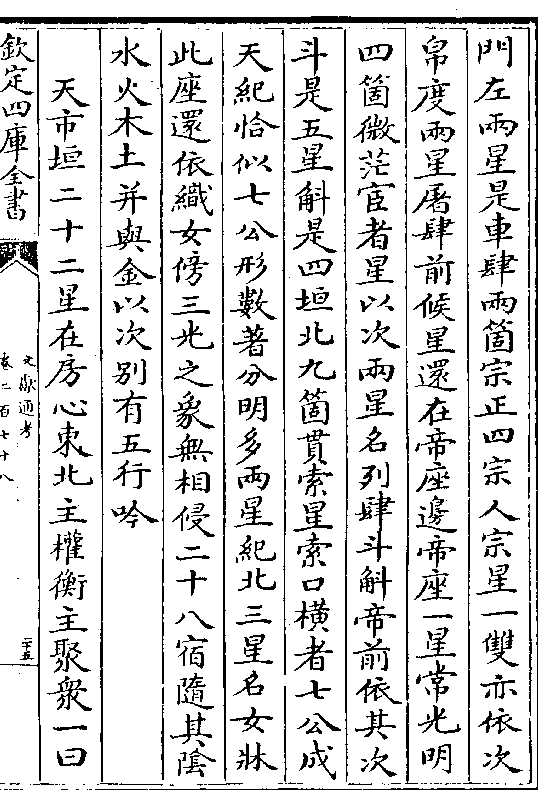 門左兩星是車肆兩箇宗正四宗人宗星一雙亦依次
帛度兩星屠肆前候星還在帝座邊帝座一星常光明
四箇微茫宦者星以次兩星名列肆斗斛帝前依其次
斗是五星斛是四垣北九箇貫索星索口横者七公成
天紀恰似七公形數著分明多兩星紀北三星名女牀
此座還依織女傍三光之象無相侵二十八宿隨其陰
水火木土并與金以次別有五行吟
天市垣二十二星在房心東北主權衡主聚衆一曰
欽定四庫全書
文獻通考
卷二百七十八
二十五